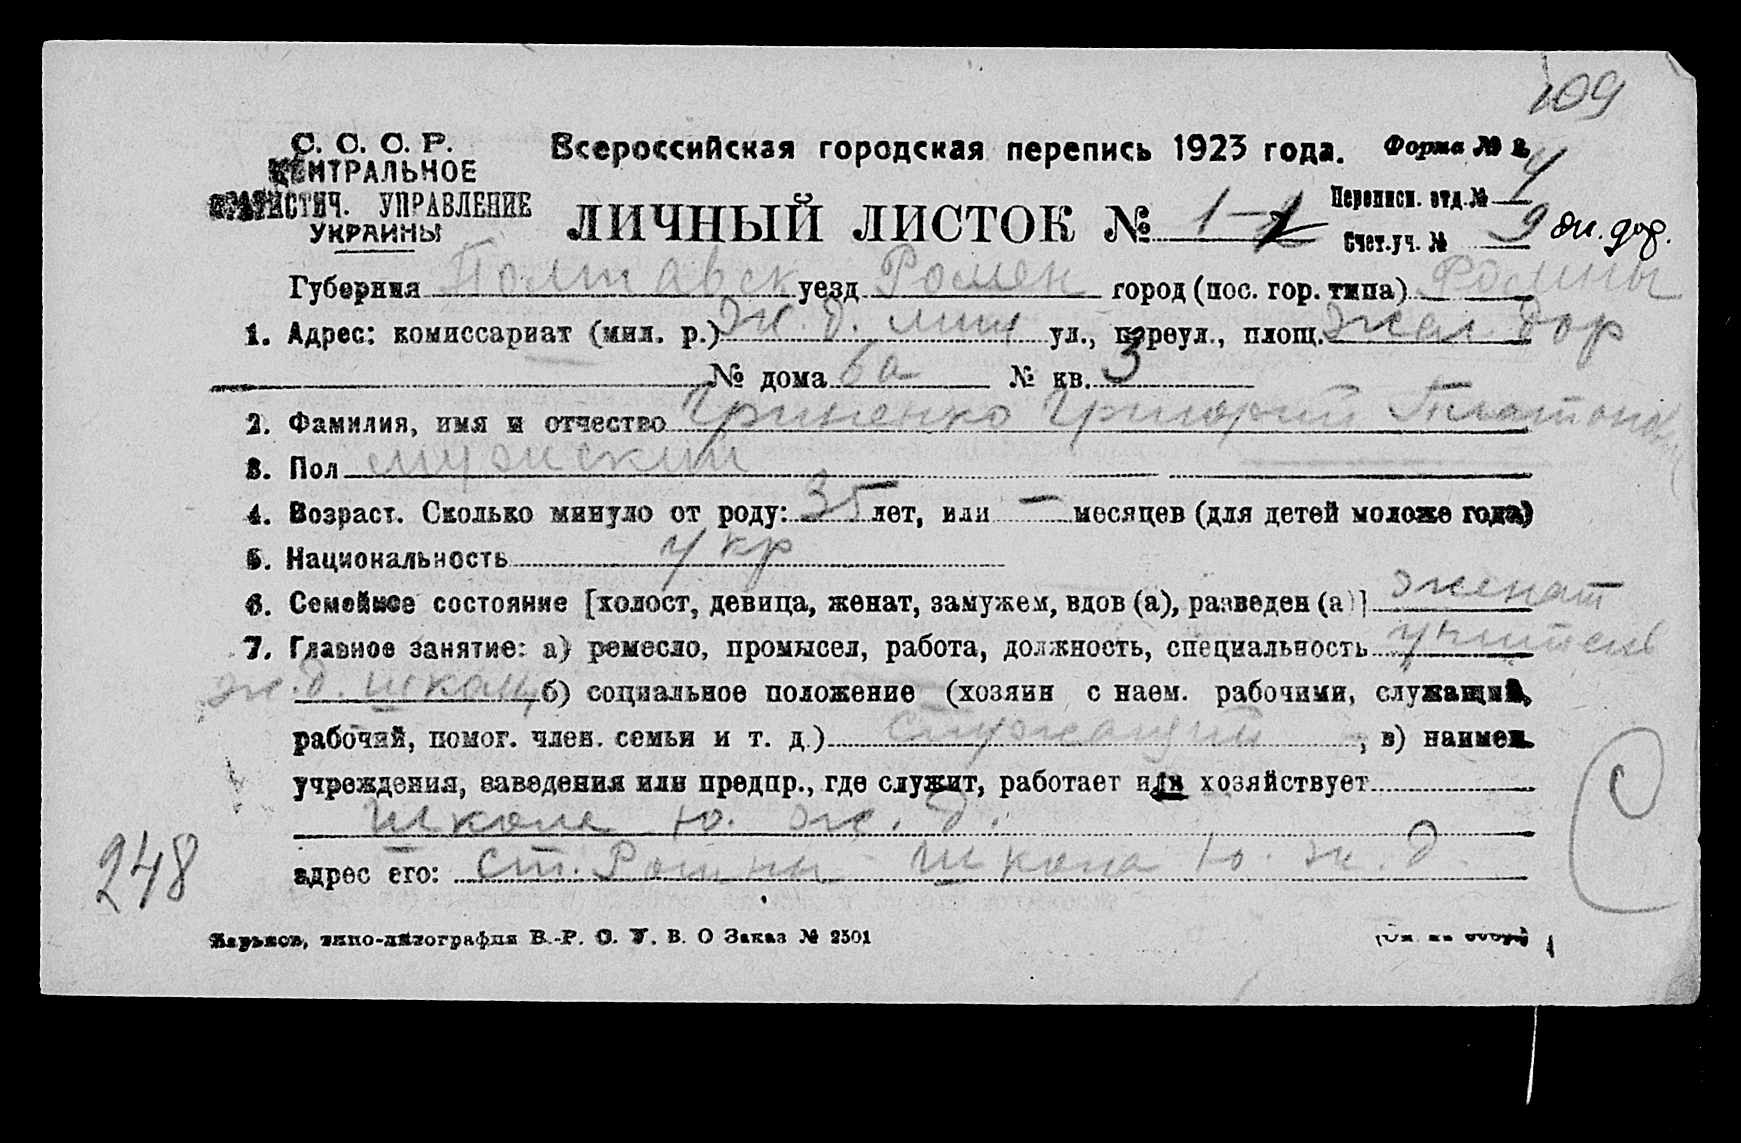 109
С. С. С. Р.
ЦЕНТРАЛЬНОЕ
СТАТИСТИЧ. УПРАВЛЕНИЕ
УКРАИНЫ
Всероссийская городская перепись 1923 года. Форма № 2
ЛИЧНЫЙ ЛИСТОК № 1-
Переписн. отд. № 4
Счет. уч. № 9 жл. дор.
Губерния Полтавск уезд Ромен город (пос. гор. типа) Ромны
1. Адрес: комиссариат (мил. р.) ж. д. мил ул., переул., площ. жел дор
№ дома 6а № кв. 3
2. Фамилия, имя и отчество Гриненко Григорий Платонович
3. Пол мужской
4. Возраст. Сколько минуло от роду: 35 лет, или — месяцев (для детей моложе года)
5. Национальность укр
6. Семейное состояние [холост, девица, женат, замужем, вдов (а), разведен (а)] женат
7. Главное занятие: а) ремесло, промысел, работа, должность, специальность учитель
ж. д. школы, б) социальное положение (хозяин с наем. рабочими, служащий,
рабочий, помог. член. семьи и т. д.) служащий, в) наимен.
учреждения, заведения или предпр., где служит, работает или хозяйствует
Школе Ю. ж. д.
адрес его: ст. Ромны Школа Ю. ж. д.
С
248
Харьков, типо-литография В.-Р. С. У. В. О Заказ № 2501
(См. на обор.)